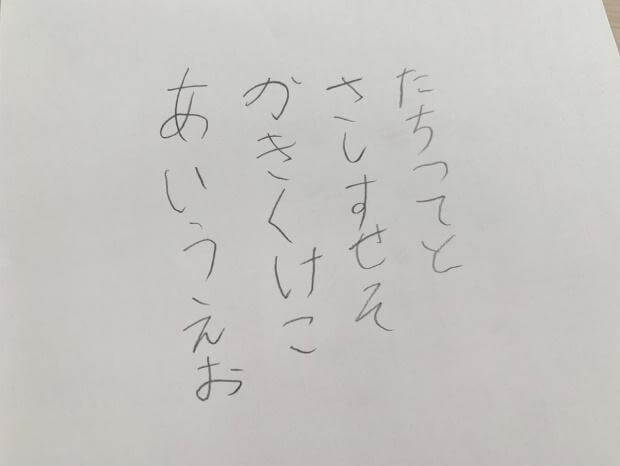 たちつてと
さしすせそ
かきくけこ
あいうえお